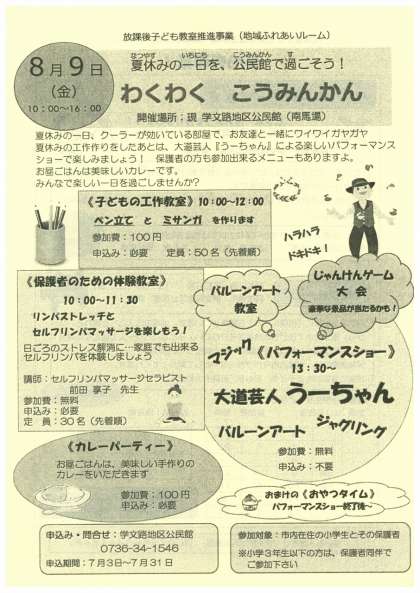 放課後子ども教室推進事業（地域ふれあいルーム）
8月9日
（金）
10：00～16：00
なつやす いちにち こうみんかん す
夏休みの一日を、公民館で過ごそう！
わくわく こうみんかん
開催場所：現 学文路地区公民館（南馬場）
夏休みの一日、クーラーが効いている部屋で、お友達と一緒にワイワイガヤガヤ
夏休みの工作作りをしたあとは、大道芸人『うーちゃん』による楽しいパフォーマンス
ショーで楽しみましょう！ 保護者の方も参加出来るメニューもありますよ。
お昼ごはんは美味しいカレーです。
みんなで楽しい一日を過ごしませんか？
《子どもの工作教室》10：00～12：00
ペン立て と ミサンガ を作ります
参加費：100円
申込み：必要 定員：50名（先着順）
ハラハラ
ドキドキ！
《保護者のための体験教室》
10：00～11：30
リンパストレッチと
セルフリンパマッサージを楽しもう！
日ごろのストレス解消に…家庭でも出来る
セルフリンパを体験しましょう
講師：セルフリンパマッサージセラピスト
前田 享子 先生
参加費：無料
申込み：必要
定員：30名（先着順）
バルーンアート
教室
じゃんけんゲーム
大会
豪華な景品が当たるかも！
マジック
《パフォーマンスショー》
13：30～
大道芸人 うーちゃん
バルーンアート
ジャグリング
参加費：無料
申込み：不要
《カレーパーティー》
お昼ごはんは、美味しい手作りの
カレーをいただきます
参加費：100円
申込み：必要
おまけの《おやつタイム》
パフォーマンスショー終了後～
申込み・問合せ：学文路地区公民館
0736-34-1546
申込期間：7月3日～7月31日
参加対象：市内在住の小学生とその保護者
※小学3年生以下の方は、保護者同伴で
ご参加下さい